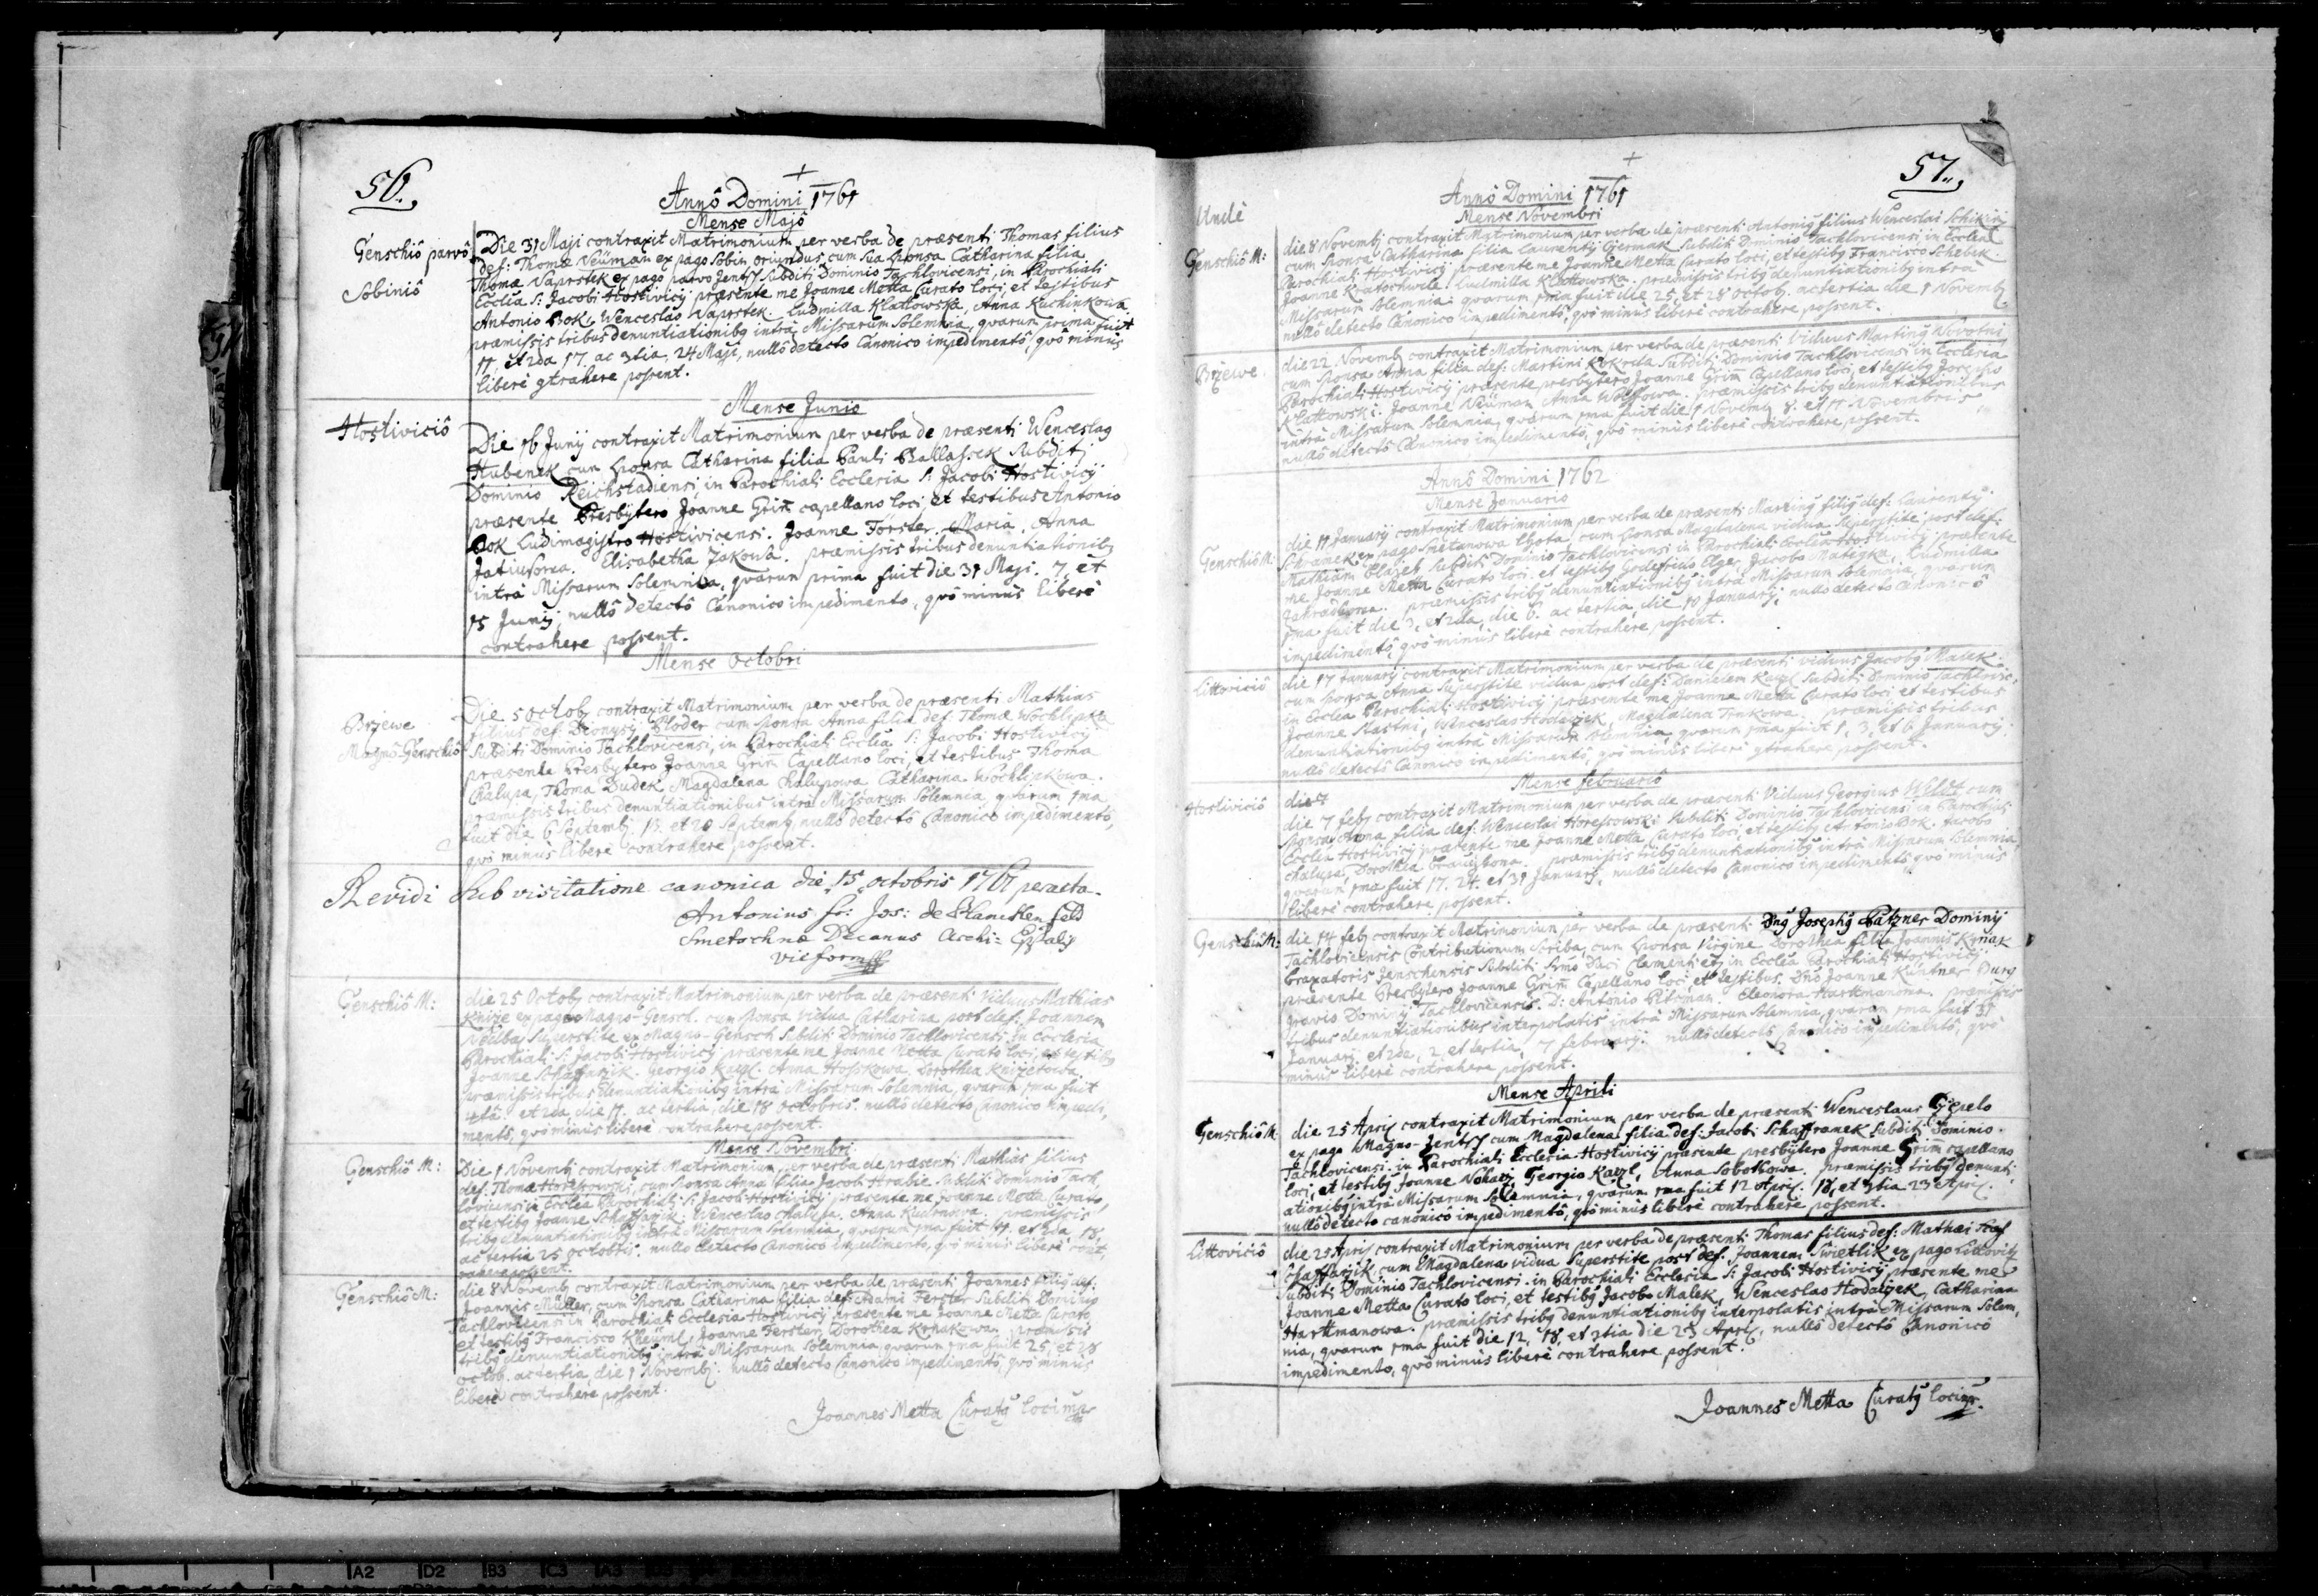 56.
Annô Domini 1761
Mense Majô
Genschiô parvô
Sobiniô
Die 31 Maji contraxit Matrimonium per verba de præsenti Thomas filius
def: Thomæ Neüman ex pago Sobin oriundus, cum sua sponsa Catharina filia
Thomæ Naprstek ex pago parvo Jentsch subditi Dominio Tachlovicensi, in Parochiali
Ecclîa S: Jacobi Hostivicij præsente me Joanne Metta Curato loci, et testibus
Antonio Bok, Wenceslao Naprstek. Ludmilla Klattowska, Anna Kuchinkowa.
præmissis tribus denuntiationibg intrà Missarum Solemnia, qvarum prima fuit
11, et 2da 17. ac 3tia 24 Maji, nullô detecto Canonico impedimentô, qvô minùs
liberè gtrahere possent.
Mense Junio
Hostiviciô
Die 16 Junij contraxit Matrimonium per verba de præsenti Wenceslag
Hubenek cum sponsa Catharina filia Pauli Ballassek Subditi
Dominio Reichstadiensi, in Parochiali Ecclesia S: Jacobi Hostivicij
præsente Presbytero Joanne Grim capellano loci, et testibus Antonio
Bok Ludimagistro Hostivicensi. Joanne Forster, Maria. Anna
Elisabetha Jakowa. præmissis tribus denuntiationibg
intrà Missarum Solemnia, qvarum prima fuit die 31 Maji. 7, et
15 Junij, nullô detectô Canonico impedimento, qvô minùs liberè
contrahere possent.
Mense Octobri
Brzewe
Magnô-Genschiô
Die 5 Octob contraxit Matrimonium per verba de præsenti Mathias
filius def: Dionysij Ploder cum sponsa Anna filia def: Thomæ Wochlipka
Subditi Dominio Tachlovicensi, in Parochiali Ecclîa S: Jacobi Hostivicij
præsente Presbytero Joanne Grim Capellano loci, et testibus Thoma
Chalupa, Thoma Dudek, Magdalena Chalupowa Catharina Wochlipkowa.
præmissis tribus denuntiationibus intrà Missarum Solemnia, qvarum 1ma
fuit die 6 Septemb, 13. et 20 Septemb, nullô detectô Canonico impedimentô,
qvô minùs liberè contrahere possent.
Revidi Sub visitatione canonica die 15 octobris 1761 peracta.
Antonius fr: Jos: de
Smetochna Decanus Archi-
Genschiô M:
die 25 Octob contraxit Matrimonium per verba de præsenti Viduus Mathias
Knize ex pago Magno-Gensch. cum sponsa vidua Catharina post def: Joannem
Superstite ex Magno-Gensch Subditi Dominio Tachlovicensi, in Ecclesia
Parochiali S: Jacobi Hostivicij præsente me Joanne Metta Curato loci, et testibg
Joanne Schaffarzik. Georgio Kaigl. Anna Hosskowa, Dorothea Knizetowa.
præmissis tribus denuntiationibg intrà Missarum Solemnia, qvarum 1ma fuit
et 2da die 11. ac tertia die 18 octobris. nullô detecto Canonico impedi,
mentô, qvô minùs liberè contrahere possent.
Mense Novembri
Genschiô M:
Die 1 Novemb contraxit Matrimonium per verba de præsenti Mathias filius
def: Thomæ Horessowski, cum sponsa Anna filia Jacob Hrabie Subditi Dominio Tach,
lovicensi in Ecclîa Parochiali S: Jacobi Hostivicij præsente me Joanne Metta Curato
et testibg Joanne Schaffarzik. Wenceslao Chalupa. Anna Kudrnowa. præmissis
tribg denuntiationibg intrà Missarum Solemnia, qvarum 1ma fuit 11. et 2da 18.
ac tertia 25 octobris. nullô detecto Canonico impedimento, qvô minùs liberè cont,
rahere possent.
Genschiô M:
die 8 Novemb contraxit Matrimonium per verba de præsenti Joannes filig def:
Joannis Müller, cum sponsa Catharina filia def: Adami Ferster Subditi Dominio
Tachlovicensi in Parochiali Ecclesia Hostivicij præsente me Joanne Metta Curato
et testibg Francisco Kheüml, Joanne Ferster, Dorothea Krnakowa. præmissis
tribg denuntiationibg intrà Missarum Solemnia, qvarum 1ma fuit 25, et 28
octob. ac tertia die 1 Novemb: nullô detecto Canonico impedimentô, qvô minùs
liberè contrahere possent.
Joannes Metta Curatg loci mp
57.
Annô Domini 1761
Mense Novembri
Undè
Genschiô M:
die 8 Novemb contraxit Matrimonium per verba de præsenti Antonig filius Wenceslai Schikirz
cum sponsa Catharina filia Laurentij Czermak Subditi Dominio Tachlovicensi, in Ecclîa
Parochiali Hostivicij præsente me Joanne Metta Curato loci, et testibg Francisco Schebek.
Joanne Kratochwile. Ludmilla Klattowska. præmissis tribg denuntiationibg intrà
Missarum Solemnia: qvarum 1ma fuit die 25, et 28 Octob. ac tertia die 1 Novemb,
nullô detecto Canonico impedimentô, qvô minùs liberè contrahere possent.
Brzewe.
die 22 Novemb contraxit Matrimonium per verba de præsenti Viduus Marting Novotni
cum sponsa Anna filia def: Martini Kokoda Subditi Dominio Tachlovicensi in Ecclesia
Parochiali Hostivicij præsente presbytero Joanne Grim Capellano loci, et testibg Josepho
Klattowski. Joanne Neüman, Anna Wolffowa. præmissis tribg denuntiationibus
intrà Missarum Solemnia, qvarum 1ma fuit die 1 Novemb, 8. et 15 Novembris
nullô detectô Canonico impedimentô, qvô minùs liberè contrahere possent.
Annô Domini 1762
Mense Januario
Genschiô M:
die 11 Januarij contraxit Matrimonium per verba de præsenti Marting filig def: Laurentij
Schramek ex pago Smetanowa Lhota, cum sponsa Magdalena vidua Superstite post def:
Mathiam Blazek Subditi Dominio Tachlovicensi in Parochiali Ecclîa Hostivicij præsente
me Joanne Metta Curato loci. et testibg Godefrido Elge, Jacobo Matizka, Ludmilla
præmissis tribg denuntiationibg intrà Missarum Solemnia, qvarum
1ma fuit die 3, et 2da die 6. ac tertia die 10 Januarij, nullo detecto Canonico
impedimentô, qvô minùs liberè contrahere possent.
Littoviciô
die 17 Januarij contraxit Matrimonium per verba de præsenti viduus Jacobg Malek
cum sponsa Anna Superstite vidua post def: Danielem Kaigl Subditi Dominio Tachlovic,
in Ecclîa Parochiali Hostivicij præsente me Joanne Metta Curato loci et testibus
Joanne Stastni, Wenceslao Hodalizek, Magdalena Trnkowa. præmissis tribus
denuntiationibg intrà Missarum Solemnia, qvarum 1ma fuit 1, 3, et 6 Januarij.
nullô detectô Canonico impedimentô, qvô minùs liberè gtrahere possent.
Mense februariô
Hostiviciô
die 7
die 7 feb contraxit Matrimonium per verba de præsenti Viduus Georgius cum
sponsa Anna filia def: Wenceslai Horessowski Subditi Dominio Tachlovicensi in Parochiali
Ecclîa Hostivicij præsente me Joanne Metta Curato loci, et testibg Antonio Bok. Jacobo
Chalupa, Dorothea. præmissis tribg denuntiationibg intrà Missarum Solemnia,
qvarum 1ma fuit 17. 24. et 31 Januarij, nullô detecto Canonico impedimentô qvô minùs
liberè contrahere possent.
Genschiô M:
die 14 feb contraxit Matrimonium per verba de præsenti Dng Josephg Patzner Dominij
Tachlovicensis Contributionum Scriba, cum sponsa Virgine Dorothea filia Joannis Krnak
braxatoris Jenschensis Subditi Srmo Duci Clementi etc in Ecclîa Parochiali Hostivicij
præsente Presbytero Joanne Grim Capellano loci, et testibus. Dno Joanne Küntner Burg
gravio Dominij Tachlovicensis. D: Antonio Pitzman. Eleonora Harttmanowa. præmissis
tribus denuntiationibus interpolatis intrà Missarum Solemnia, qvarum 1ma fuit 31
Januarij, et 2da, 2, et tertia, 7 februarij. nullô detectô Canonico impedimentô, qvô
minùs liberè contrahere possent.
Mense Aprili
Genschiô M:
die 25 Apris contraxit Matrimonium per verba de præsenti Wenceslaus Czepelo
ex pago Magno-Jentsch cum Magdalena filia def: Jacobi Schaffranek Subditi Dominio
Tachlovicensi. in Parochiali Ecclesia Hostivicij præsente presbytero Joanne Grim capellano
loci, et testibg Joanne, Georgio Kaigl, Anna Sobotkowa. præmissis tribg denunti,
ationibg intrà Missarum Solemnia, qvarum 1ma fuit 12 Apris. 18, et 3tia 23 Apris.
nullô detecto canonicô impedimentô, qvô minùs liberè contrahere possent.
Littoviciô
die 25 Apris contraxit Matrimonium per verba de præsenti Thomas filius def: Mathæi
Schaffarzik cum Magdalena vidua Superstite post def. Joannem Swietlik ex pago Littovitz
Subditi Dominio Tachlovicensi. in Parochiali Ecclesia S: Jacobi Hostivicij præsente me
Joanne Metta Curato loci, et testibg Jacobo Malek, Wenceslao Hodalizek, Catharina
Harttmanowa. præmissis tribg denuntiationibg interpolatis intrà Missarum Solem,
nia, qvarum 1ma fuit die 12, 18, et 3tia die 23 Apris, nullô detectô Canonicô
impedimento, qvô minùs liberè contrahere possent.
Joannes Metta Curatg loci mp.
A2 D2 B3 C3 A3